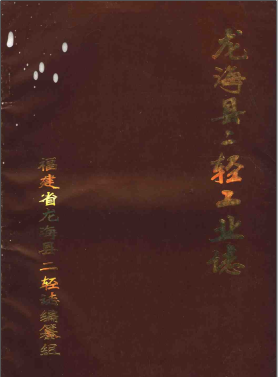 龙海县二轻工业志
福建省龙海县二轻志编纂组